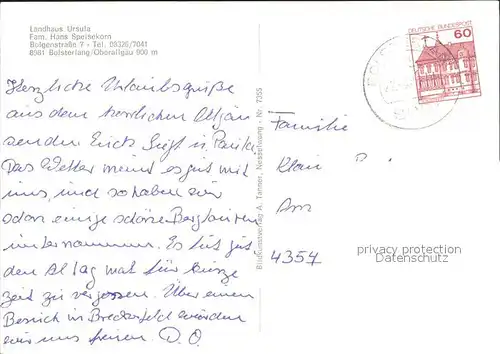 Landhaus Ursula
Fam. Hans Speisekorn
Bolgenstraße 7 · Tel. 08326/7041
8581 Bolsterlang/Oberallgäu 900 m
DEUTSCHE BUNDESPOST
60
Herzliche Urlaubsgrüße
aus dem herrlichen Allgäu
senden Erich
Das Wetter meint es gut mit
uns, und so haben wir
schon einige schöne Bergtouren
unternommen. Es tut gut
den Alltag mal für kurze
Zeit zu vergessen. Über einen
Besuch in Breckerfeld würden
wir uns freuen. D. O.
Bildkunstverlag A. Tanner, Nesselwang - Nr. 7355
Familie
Klaus
Am
4354
privacy protection
Datenschutz